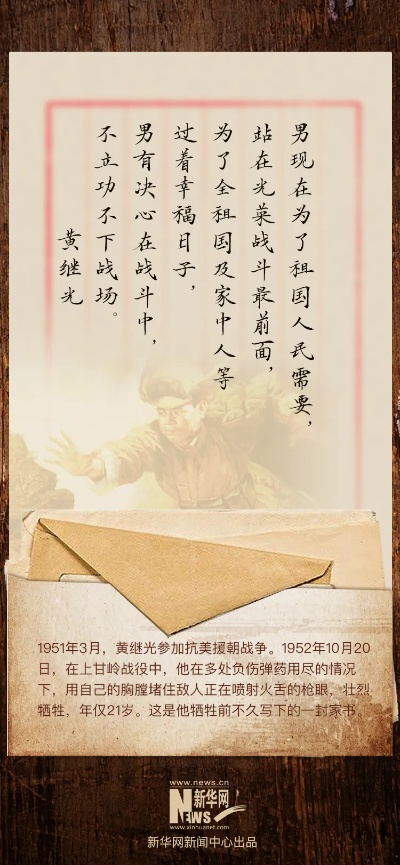 男现在为了祖国人民需要，
站在光荣战斗最前面，
为了全祖国及家中人等
过着幸福日子，
男有决心在战斗中，
不立功不下战场。
黄继光
1951年3月，黄继光参加抗美援朝战争。1952年10月20
日，在上甘岭战役中，他在多处负伤弹药用尽的情况
下，用自己的胸膛堵住敌人正在喷射火舌的枪眼，壮烈
牺牲，年仅21岁。这是他牺牲前不久写下的一封家书。
www.news.cn
NEWS 新华网
www.xinhuanet.com
新华网新闻中心出品